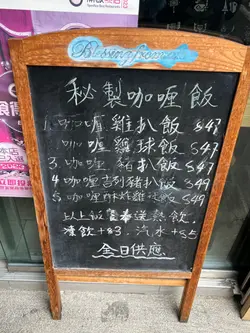 Blessing from
秘製咖喱飯
1. 咖喱雞扒飯 $47
咖喱雞球飯 $47
3. 咖喱豬扒飯 $47
4 咖喱吉列豬扒飯 $49
5 咖喱酥炸雞球飯 $49
以上設餐送熱飲,
凍飲+$3. 汽水+$5
全日供應